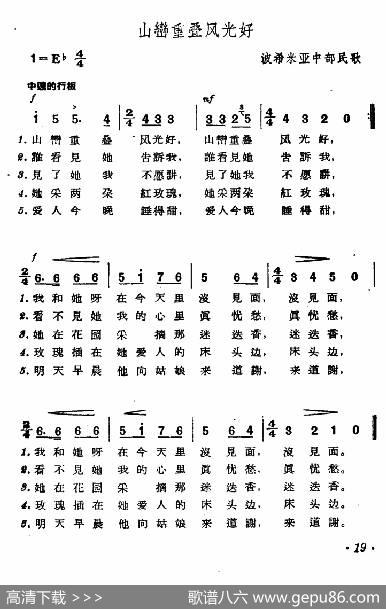 山巒重叠风光好
1=E♭ 4/4
波希米亚中部民歌
中速的行板
f mf
i 5 5. 4 | 2/4 4 3 3 | 3 3 2 5 | 4/4 4 3 2 0
1.山巒重叠 风光好, 山巒重叠 风光好,
2.誰看見她 告訴我, 誰看見她 告訴我,
3.見了她我 不愿講, 見了她我 不愿講,
4.她采两朶 紅玫瑰, 她采两朶 紅玫瑰,
5.爱人今晚 睡得甜, 爱人今晚 睡得甜,
f
2/4 6. 6 6. 6 | 5 i 7 6 | 5 6 4 | 4/4 4 5 3 0
1.我和她呀 在今天里 沒見面, 沒見面,
2.看不見她 我的心里 眞忧愁, 眞忧愁,
3.她在花園 采摘那 迷迭香, 迷迭香,
4.玫瑰插在 她爱人的 床头边, 床头边,
5.明天早晨 他向姑娘 来道謝, 来道謝,
2/4 6. 6 6. 6 | 5 i 7 6 | 5 6 4 | 4/4 3 2 1 0
1.我和她呀 在今天里 沒見面, 沒見面。
2.看不見她 我的心里 眞忧愁, 眞忧愁。
3.她在花園 采摘那 迷迭香, 迷迭香。
4.玫瑰插在 她爱人的 床头边, 床头边。
5.明天早晨 他向姑娘 来道謝, 来道謝。
· 19 ·
高清下载 >>>>> 歌谱八六 www.gepu86.com